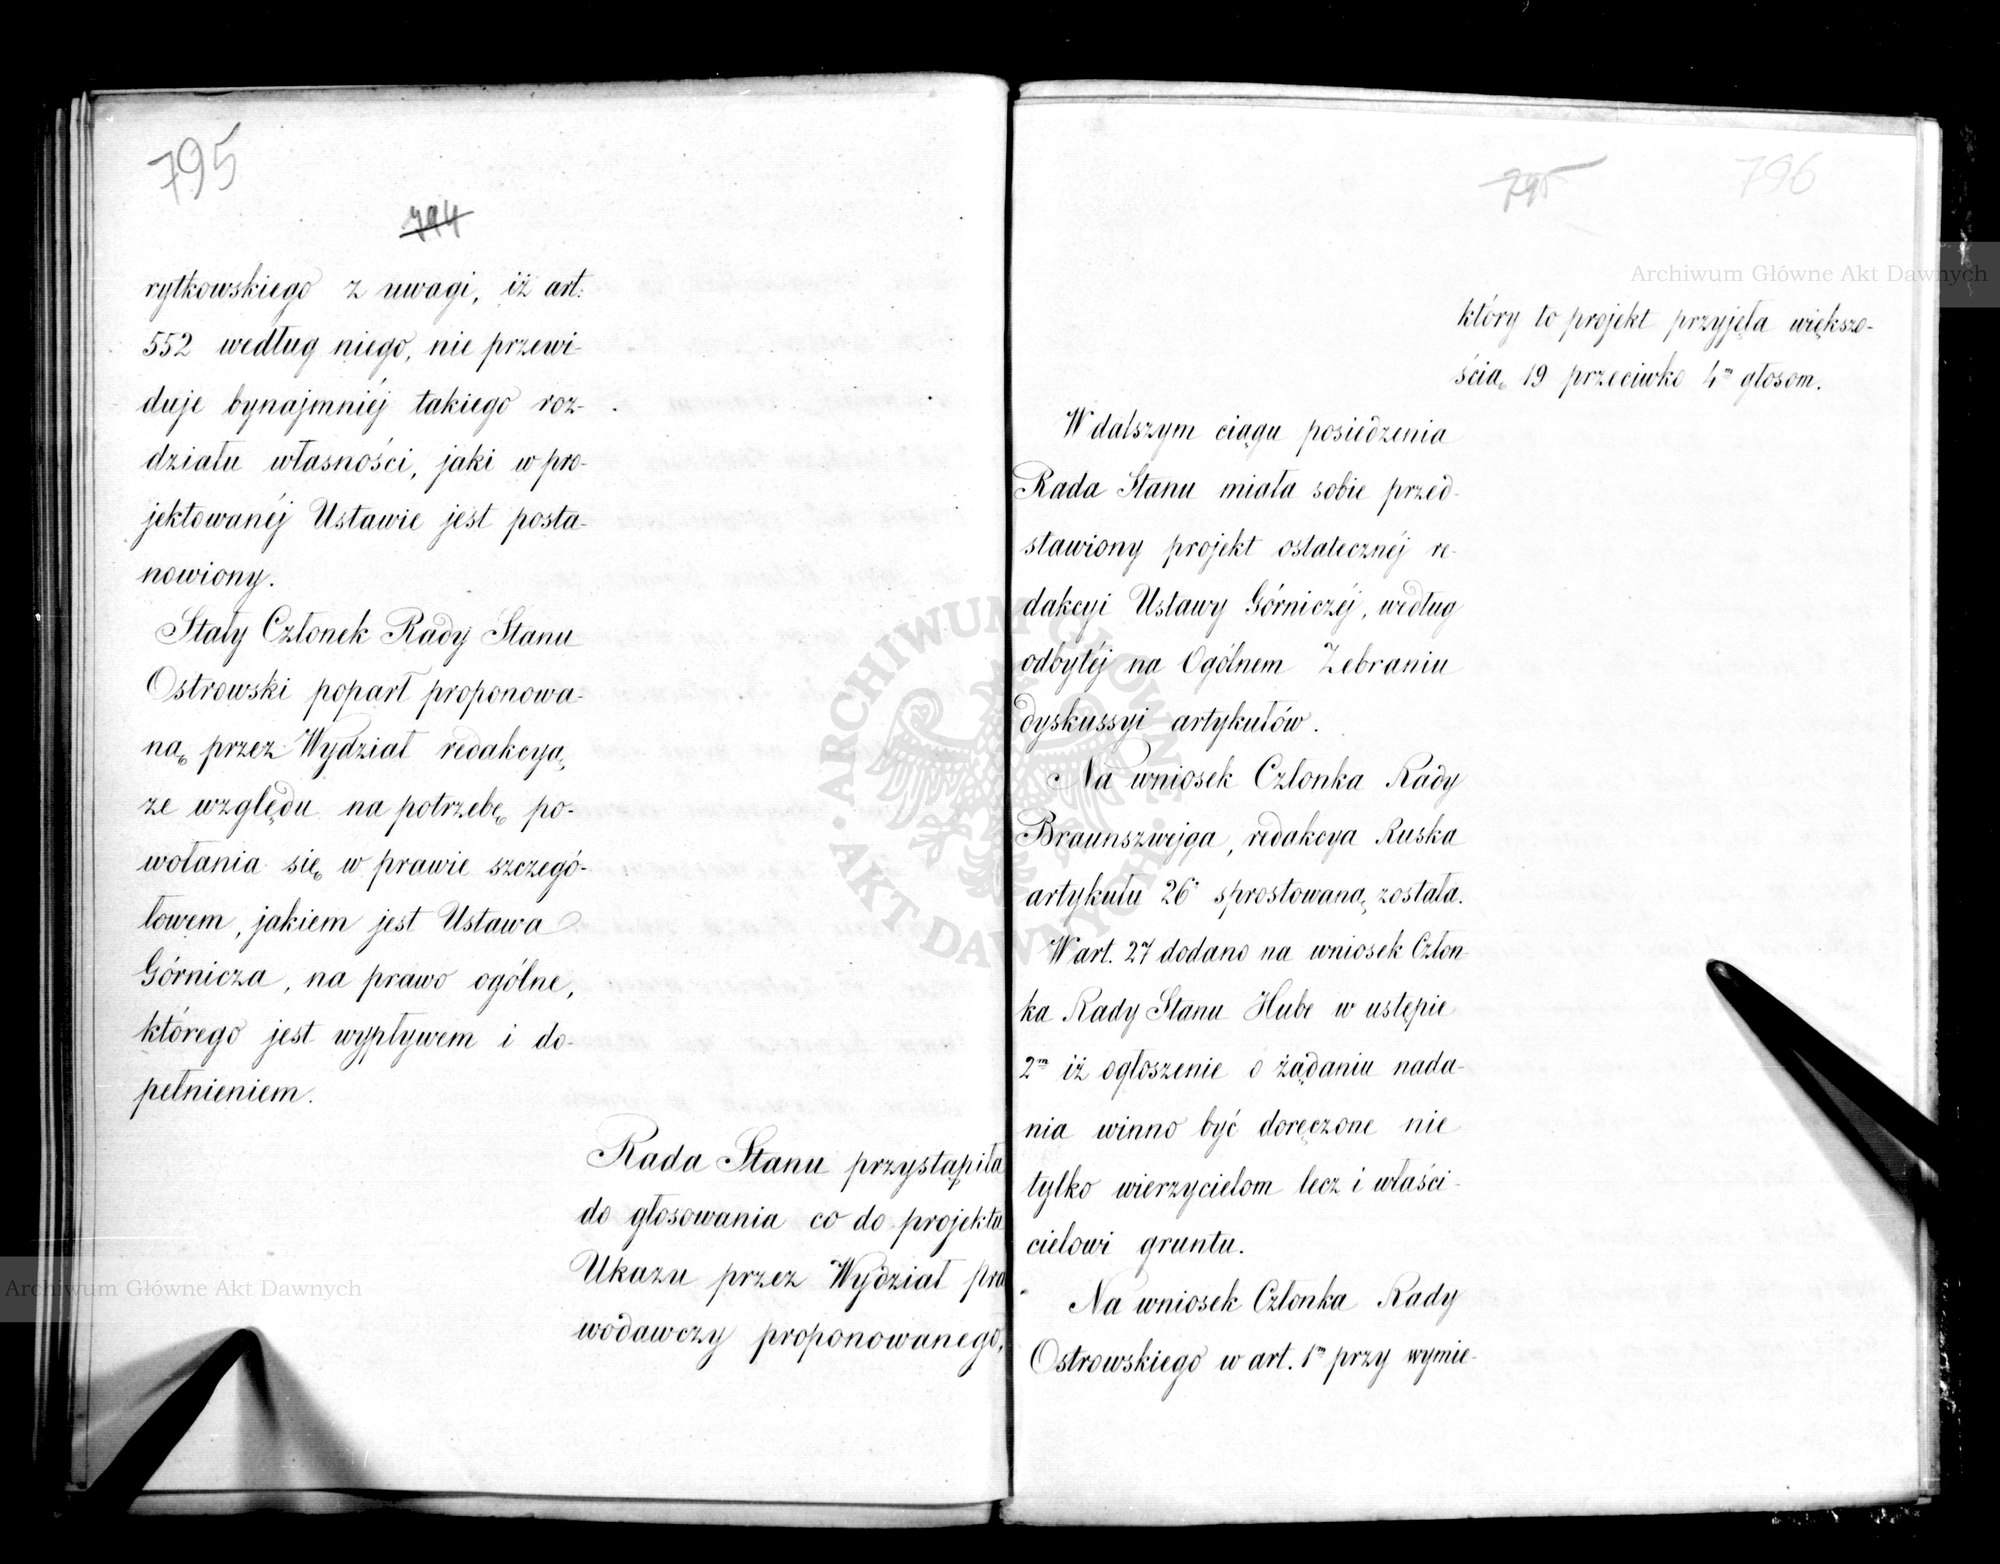 795
794
rytkowskiego z uwagi, iż art:
552 według niego, nie przewi-
duje bynajmniéj takiego roz-
działu własności, jaki w pro-
jektowanéj Ustawie jest posta-
nowiony.
Stały Członek Rady Stanu
Ostrowski poparł proponowa-
ną przez Wydział redakcyą,
ze względu na potrzebę po-
wołania się w prawie szczegó-
łowem, jakiem jest Ustawa
Górnicza, na prawo ogólne,
którego jest wypływem i do-
pełnieniem.
Rada Stanu przystąpiła
do głosowania co do projektu
Ukazu przez Wydział pra
wodawczy proponowanego,
795
796
który to projekt przyjęła większo-
ścią 19 przeciwko 4m głosom.
W dalszym ciągu posiedzenia
Rada Stanu miała sobie przed-
stawiony projekt ostatecznéj re-
dakcyi Ustawy Górniczéj, według
odbytéj na Ogólnem Zebraniu
dyskussyi artykułów.
Na wniosek Członka Rady
Braunszwejga, redakcya Ruska
artykułu 26 sprostowaną została.
W art. 27 dodano na wniosek Człon-
ka Rady Stanu Hube w ustępie
2m iż ogłoszenie o żądaniu nada-
nia winno być doręczone nie
tylko wierzycielom lecz i właści-
cielowi gruntu.
Na wniosek Członka Rady
Ostrowskiego w art. 1m przy wymie-
Archiwum Główne Akt Dawnych
Archiwum Główne Akt Dawnych
ARCHIWUM GŁÓWNE · AKT DAWNYCH ·